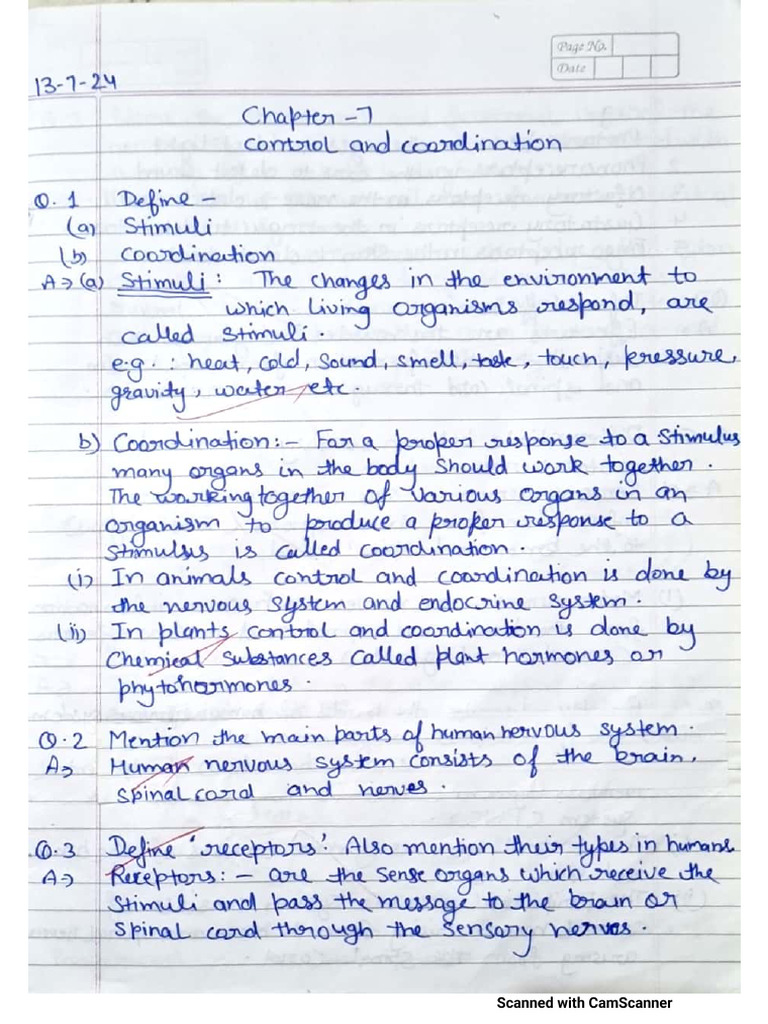 Page No.
Date
13-7-24
Chapter -7
control and coordination
Q. 1 Define -
(a) Stimuli
(b) Coordination
A⇒ (a) Stimuli : The changes in the environment to
which living organisms respond, are
called stimuli.
e.g. : heat, cold, sound, smell, taste, touch, pressure,
gravity, water, etc
b) Coordination :- For a proper response to a stimulus
many organs in the body should work together.
The working together of various organs in an
organism to produce a proper response to a
stimulus is called coordination.
(i) In animals control and coordination is done by
the nervous system and endocrine system.
(ii) In plants control and coordination is done by
Chemical substances called plant hormones or
phytohormones.
Q.2 Mention the main parts of human nervous system.
A⇒ Human nervous system consists of the brain,
spinal cord and nerves.
Q.3 Define 'receptors'. Also mention their types in humans
A⇒ Receptors :- are the sense organs which receive the
stimuli and pass the message to the brain or
spinal cord through the sensory nerves.
Scanned with CamScanner